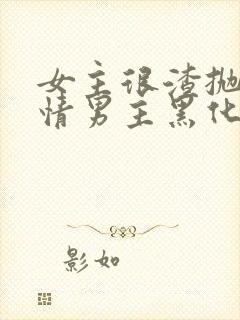 女主很渣抛
情男主黑化
影如